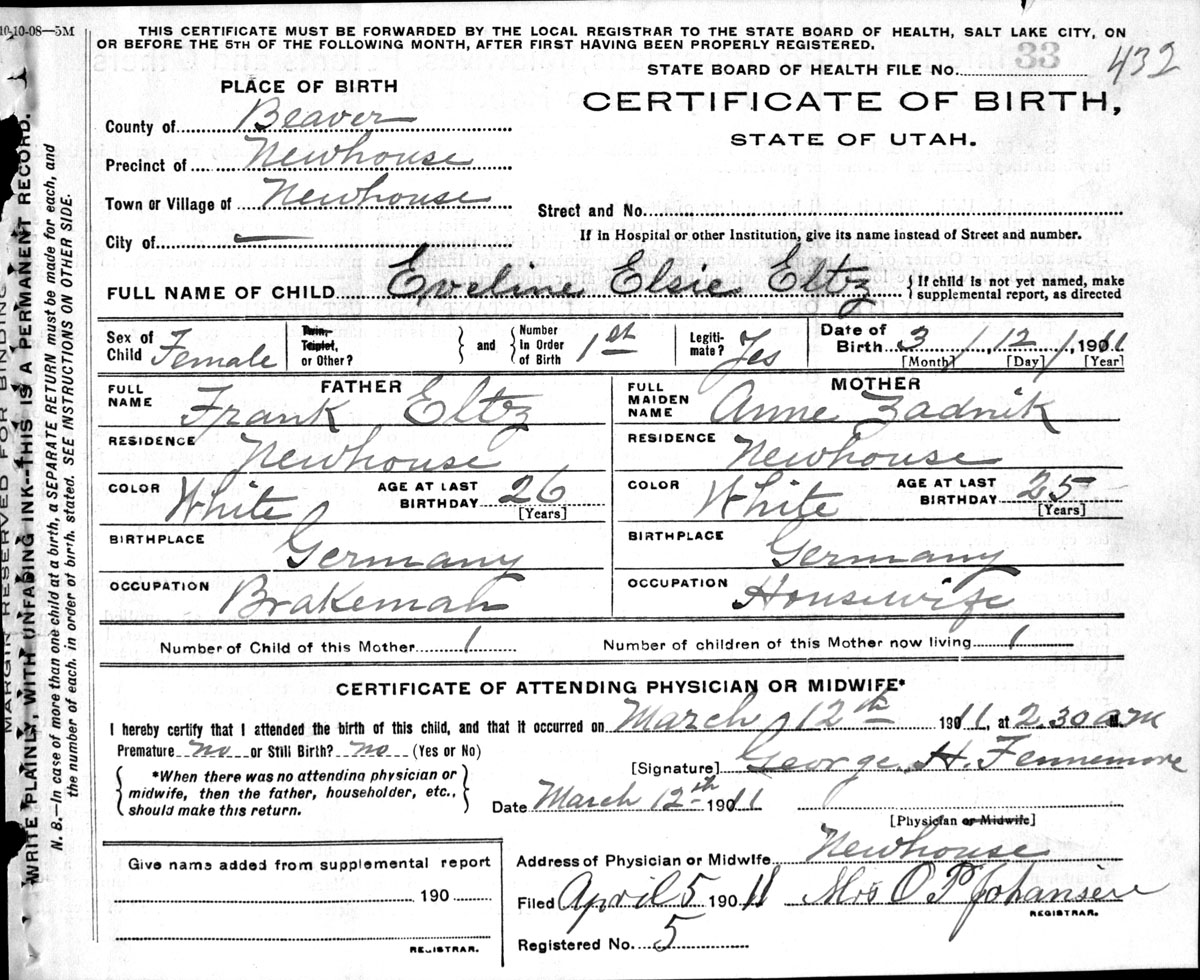 10-10-08—5M
THIS CERTIFICATE MUST BE FORWARDED BY THE LOCAL REGISTRAR TO THE STATE BOARD OF HEALTH, SALT LAKE CITY, ON
OR BEFORE THE 5TH OF THE FOLLOWING MONTH, AFTER FIRST HAVING BEEN PROPERLY REGISTERED.
33
STATE BOARD OF HEALTH FILE No. 432
PLACE OF BIRTH
CERTIFICATE OF BIRTH,
STATE OF UTAH.
County of Beaver
Precinct of Newhouse
Town or Village of Newhouse
Street and No.
City of —
If in Hospital or other Institution, give its name instead of Street and number.
FULL NAME OF CHILD Eveline Elsie Eltz { If child is not yet named, make
supplemental report, as directed
Sex of Child Female
Twin, Triplet, or Other? } and { Number In Order of Birth 1st
Legitimate? Yes
Date of Birth 3 / 12 / 1911
[Month] [Day] [Year]
FATHER
FULL NAME Frank Eltz
RESIDENCE Newhouse
COLOR White AGE AT LAST BIRTHDAY 26 [Years]
BIRTHPLACE Germany
OCCUPATION Brakeman
MOTHER
FULL MAIDEN NAME Anne Zadnik
RESIDENCE Newhouse
COLOR White AGE AT LAST BIRTHDAY 25 [Years]
BIRTHPLACE Germany
OCCUPATION Housewife
Number of Child of this Mother 1 Number of children of this Mother now living 1
CERTIFICATE OF ATTENDING PHYSICIAN OR MIDWIFE*
I hereby certify that I attended the birth of this child, and that it occurred on March 12th 1911, at 2.30 am M.
Premature no or Still Birth? no (Yes or No)
*When there was no attending physician or
midwife, then the father, householder, etc.,
should make this return.
[Signature] George H. Fennemore
Date March 12th 1911
[Physician or Midwife]
Give name added from supplemental report
190
REGISTRAR.
Address of Physician or Midwife Newhouse
Filed April 5 1911 Mrs O P Johansen
REGISTRAR.
Registered No. 5
MARGIN RESERVED FOR BINDING
WRITE PLAINLY, WITH UNFADING INK—THIS IS A PERMANENT RECORD.
N. B.—In case of more than one child at a birth, a SEPARATE RETURN must be made for each, and
the number of each, in order of birth, stated. SEE INSTRUCTIONS ON OTHER SIDE.